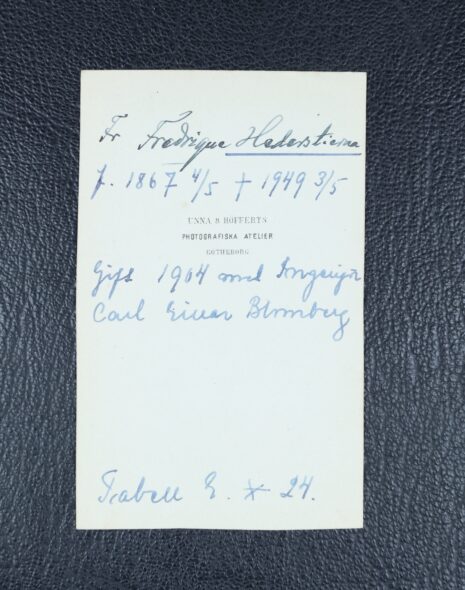 Fr Fredrique Hederstierna
f. 1867 4/5 † 1949 3/5
UNNA & HÖFFERTS
PHOTOGRAFISKA ATELIER
GOTHEBORG
Gift 1904 med Ingeniör
Carl Einar Blomberg
Tabell E. * 24.